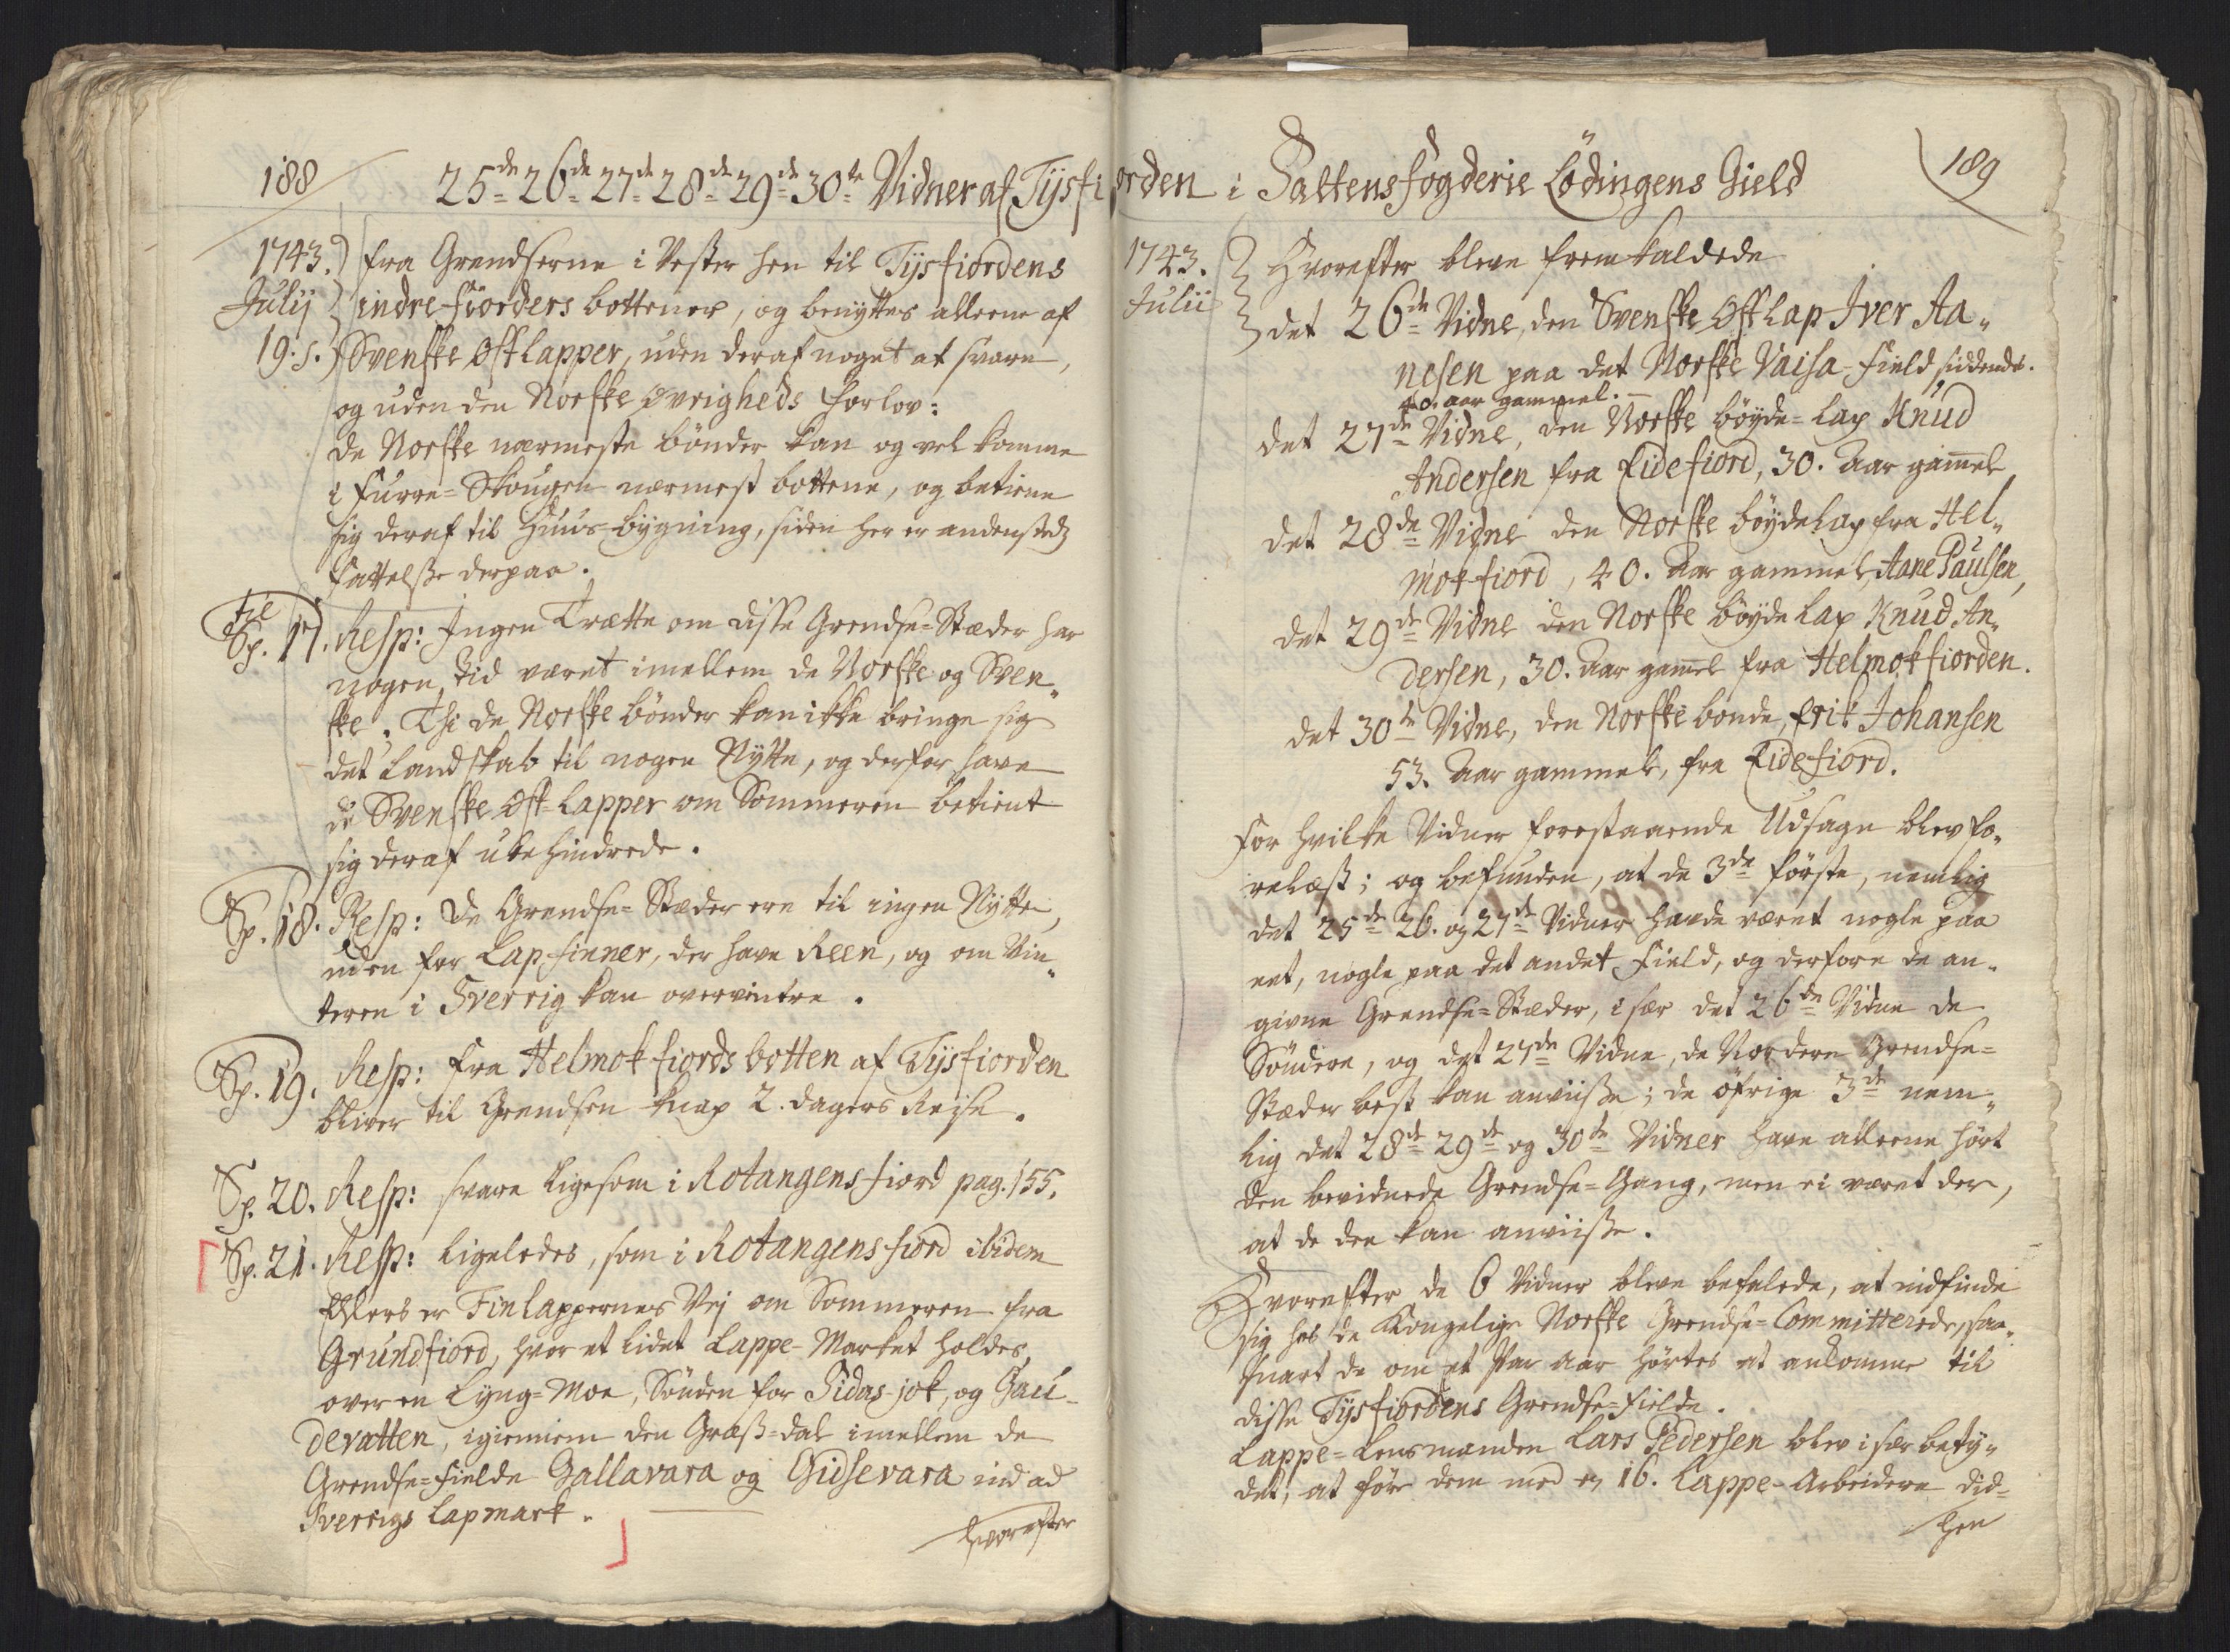 188
25de 26de 27de 28de 29de 30te Vidner af Tysfi
1743. fra Grendserne i Vester hen til Tysfiordens
Julij indre fiorders bottener, og benyttes alleene af
19. s. Svenske Østlapper, uden deraf noget at svare,
og uden den Norske Øvrigheds Forlov:
de Norske nærmeste bönder kan og vel komme
i Furre-Skougen nærmest bottene, og betiene
sig deraf til Huus-bygning, siden her er andenstedz
Fattelsse derpaa.
til
Sp. 17. Resp: Ingen Trætte om disse Grendse-Stæder har
nogen tid været imellem de Norske og Sven„
ske. Thi de Norske bönder kan ikke bringe sig
det Landskab til nogen Nytte, og derfor have
de Svenske Øst-Lapper om Sommeren betient
sig deraf ubehindrede.
Sp. 18. Resp: De Grendse-Stæder ere til ingen Nytte,
uden for Lapfinner, der have Reen, og om Vin„
teren i Sverrig kan overvintre.
Sp. 19. Resp: fra Helmokfiords botten af Tysfiorden
bliver til Grendsen knap 2. dagers Rejse.
Sp. 20. Resp: svare ligesom i Rotangensfiord pag. 155.
Sp. 21. Resp: Ligeledes, som i Rotangensfiord ibidem
Ellers er Finlappernes Vej om Sommeren fra
Grundfiord, hvor et lidet Lappe-Market holdes,
over en Lyng-Moe, Sönden for Sidas-jok, og Gau-
devatten, igiennem den Græss-dal imellem de
Grendse-Fielde Gallavara og Gidsevara ind ad
Sverrigs Lapmark.
Hvorefter
orden i Saltens fogderie Lödingens Gield
189
1743. Hvorefter bleve fremkaldede
Julii det 26de Vidne, den Svenske Østlap Iver Aa„
nesen paa det Norske Vaisa-Field siddende.
40. aar gammel.
det 27de Vidne, den Norske böyde-Lap Knud
Andersen fra Eidefiord, 30. Aar gamel
det 28de Vidne den Norske böyde Lap fra Hel„
mokfiord, 40. Aar gammel, Aane Paulsen,
det 29de Vidne den Norske böyde Lap Knud An„
dersen, 30. Aar gamel fra Helmokfiorden.
det 30te Vidne, den Norske bonde, Erik Johansen
53. Aar gammel, fra Eidefiord.
For hvilke Vidner forestaaende Udsagn blev fo„
relæst; og befunden, at de 3de förste, nemlig
det 25de 26. og 27de Vidner havde været nogle paa
eet, nogle paa det andet Field, og derfore de an„
givne Grendse-Stæder, i sær det 26de Vidne de
Söndere, og det 27de Vidne, de Nordere Grendse-
Stæder best kan anviisse; de öfrige 3de nem„
lig det 28de 29de og 30te Vidner have alleene hört
den bevidnede Grendse-Gang, men ei været der,
at de den kan anviisse.
Hvorefter de 6 Vidner bleve befalede, at indfinde
sig hos de Kongelige Norske Grendse-Committerede, saa„
snart de om et Par Aar hörtes at ankomme til
disse Tysfiordens Grendse-Fielde.
Lappe-Lensmanden Lars Pedersen blev i sær bety„
det, at före dem med og 16. Lappe-Arbeidere did-
hen